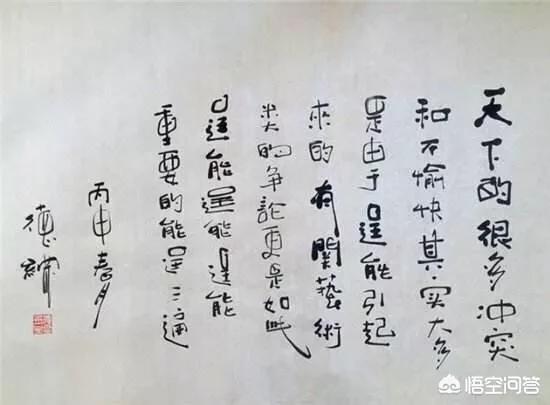 天下的很多冲突
和不愉快其实大多
是由于逞能引起
來的有関藝術
类的争論更是如此
逞能逞能逞能
重要的能逞三遍
丙申春月
德
悟空问答